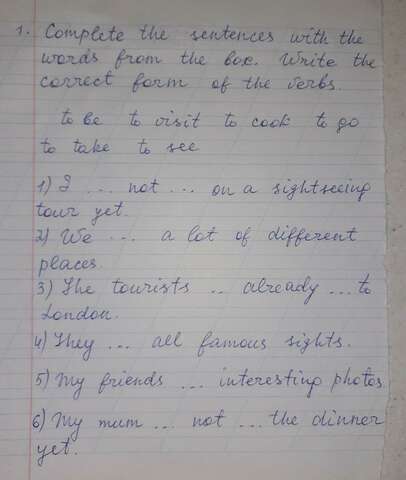 1. Complete the sentences with the
words from the box. Write the
correct form of the verbs.
to be to visit to cook to go
to take to see
1) I ... not ... on a sightseeing
tour yet.
2) We ... a lot of different
places.
3) The tourists .. already ... to
London.
4) They ... all famous sights.
5) My friends ... interesting photos
6) My mum ... not ... the dinner
yet.